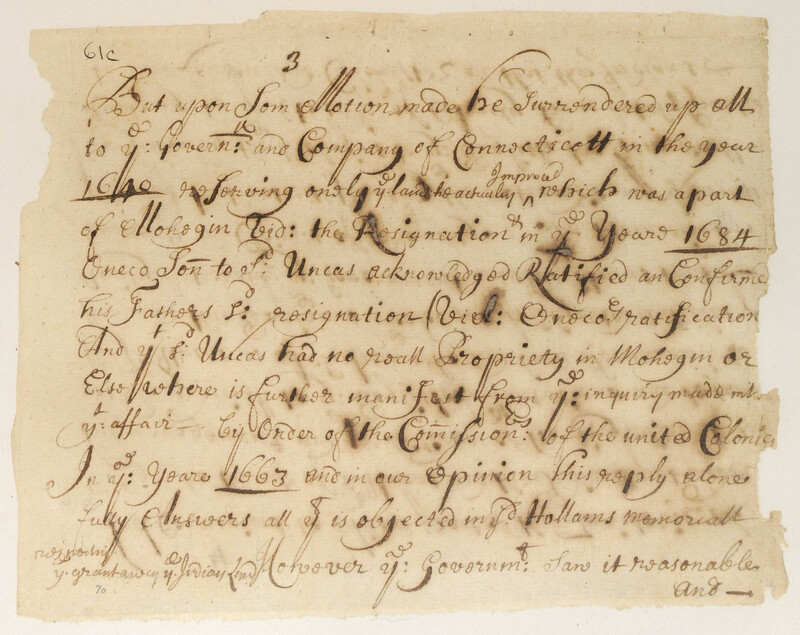 61c
3
But upon Som Motion made he Surrendered up all
to yᵉ: Governʳ: and Company of Connecticott in the year
1640 reserving onely yᵉ land he actually Improvᵈ ‸ which was a part
of Mohegin Vid: the Resignation & in yᵉ Yeare 1684
Oneco Son̄ to sᵈ. Uncas acknowledged Ratified an Confirme
his Fathers sᵈ. resignation (Vid: Onecoˢ ratification
And yᵗ sᵈ. Uncas had no reall Propriety in Mohegin or
Else where is further manifest from yᵉ: inquiry made
yᵗ: affair by Order of the Com̄issionʳˢ: of the united Colonies
In yᵉ: Yeare 1663 and in our Opinion this reply alone
fully Answers all yᵗ is objected in sᵈ Hallams memoriall
yᵉ: grant away yᵉ: Indian Land However yᵉ: Governmᵗ: Saw it reasonable
70
and —